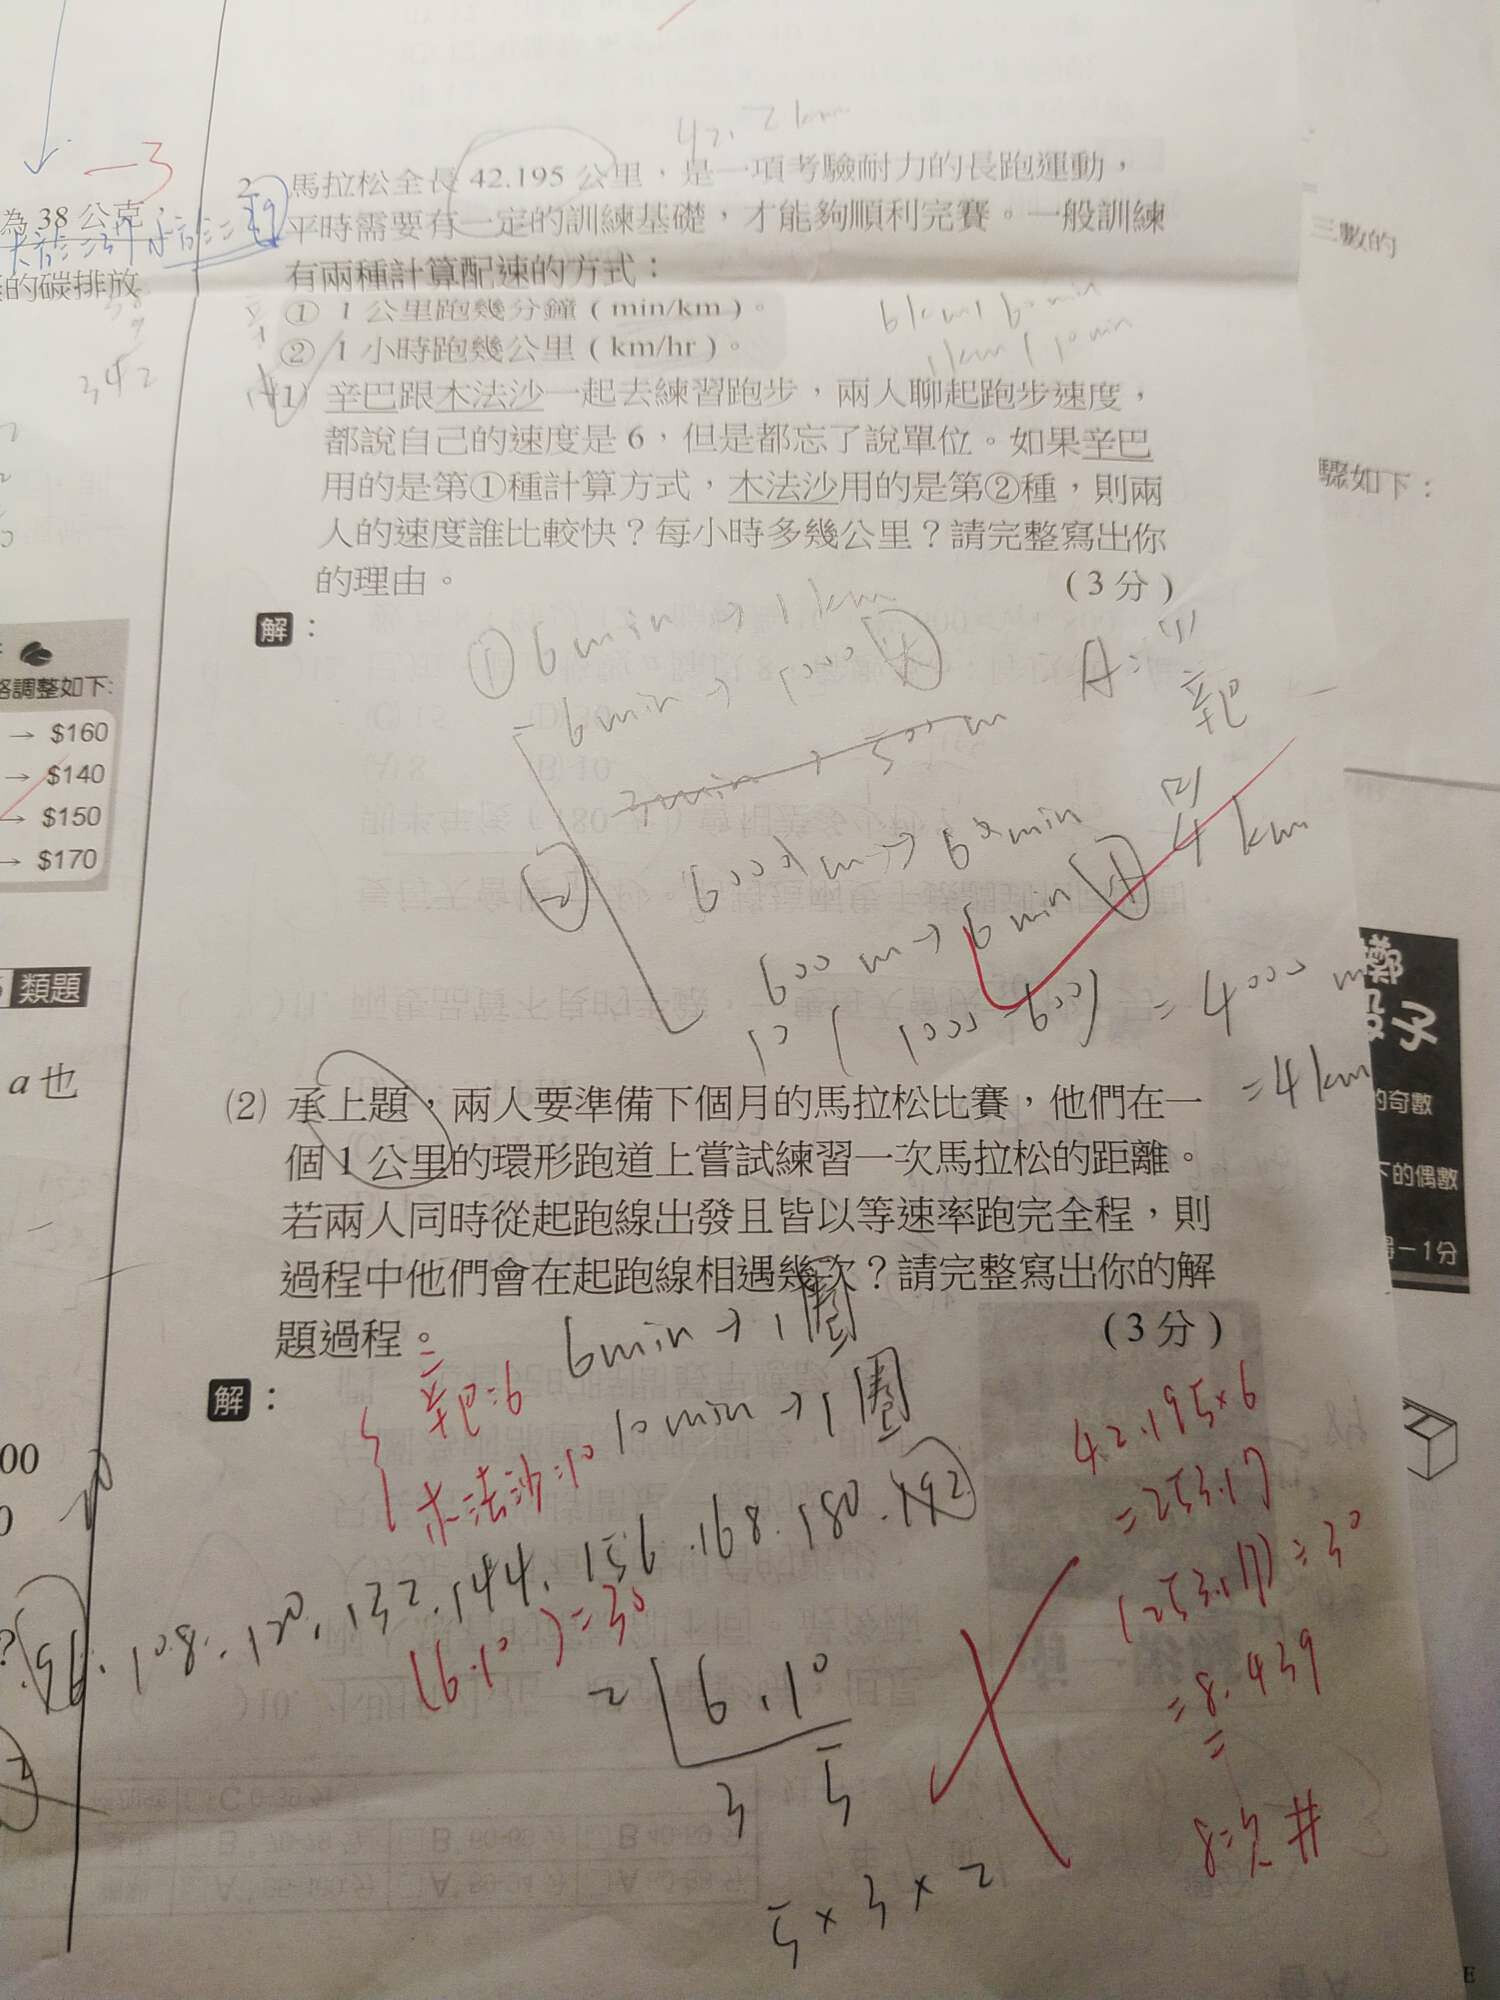 -3
為 38 公克，
的碳排放
342
格調整如下:
→ $160
→ $140
→ $150
→ $170
類題
a 也
42.2km
2. 馬拉松全長 42.195 公里，是一項考驗耐力的長跑運動，
平時需要有一定的訓練基礎，才能夠順利完賽。一般訓練
有兩種計算配速的方式：
① 1 公里跑幾分鐘（min/km）。
② 1 小時跑幾公里（km/hr）。
6km/60min
1km/10min
(1) 辛巴跟木法沙一起去練習跑步，兩人聊起跑步速度，
都說自己的速度是 6，但是都忘了說單位。如果辛巴
用的是第①種計算方式，木法沙用的是第②種，則兩
人的速度誰比較快？每小時多幾公里？請完整寫出你
的理由。 （3 分）
解：
① 6min→1km
6min→1000
A:(1)
辛巴
(2)
4km
②
600m→6min
10(1000-600)=4000m
=4km
(2) 承上題，兩人要準備下個月的馬拉松比賽，他們在一
個 1 公里的環形跑道上嘗試練習一次馬拉松的距離。
若兩人同時從起跑線出發且皆以等速率跑完全程，則
過程中他們會在起跑線相遇幾次？請完整寫出你的解
題過程。 （3 分）
解：
6min→1圈
10min→1圈
辛巴=6
木法沙=10
96.108.120.132.144.156.168.180.192
(6.10)=30
2 6.10
3 5
5×3×2
42.195×6
=253.17
(253.17)÷30
=8.439
=
8次#
三數的
驟如下：
擲
骰子
的奇數
下的偶數
得－1分
E